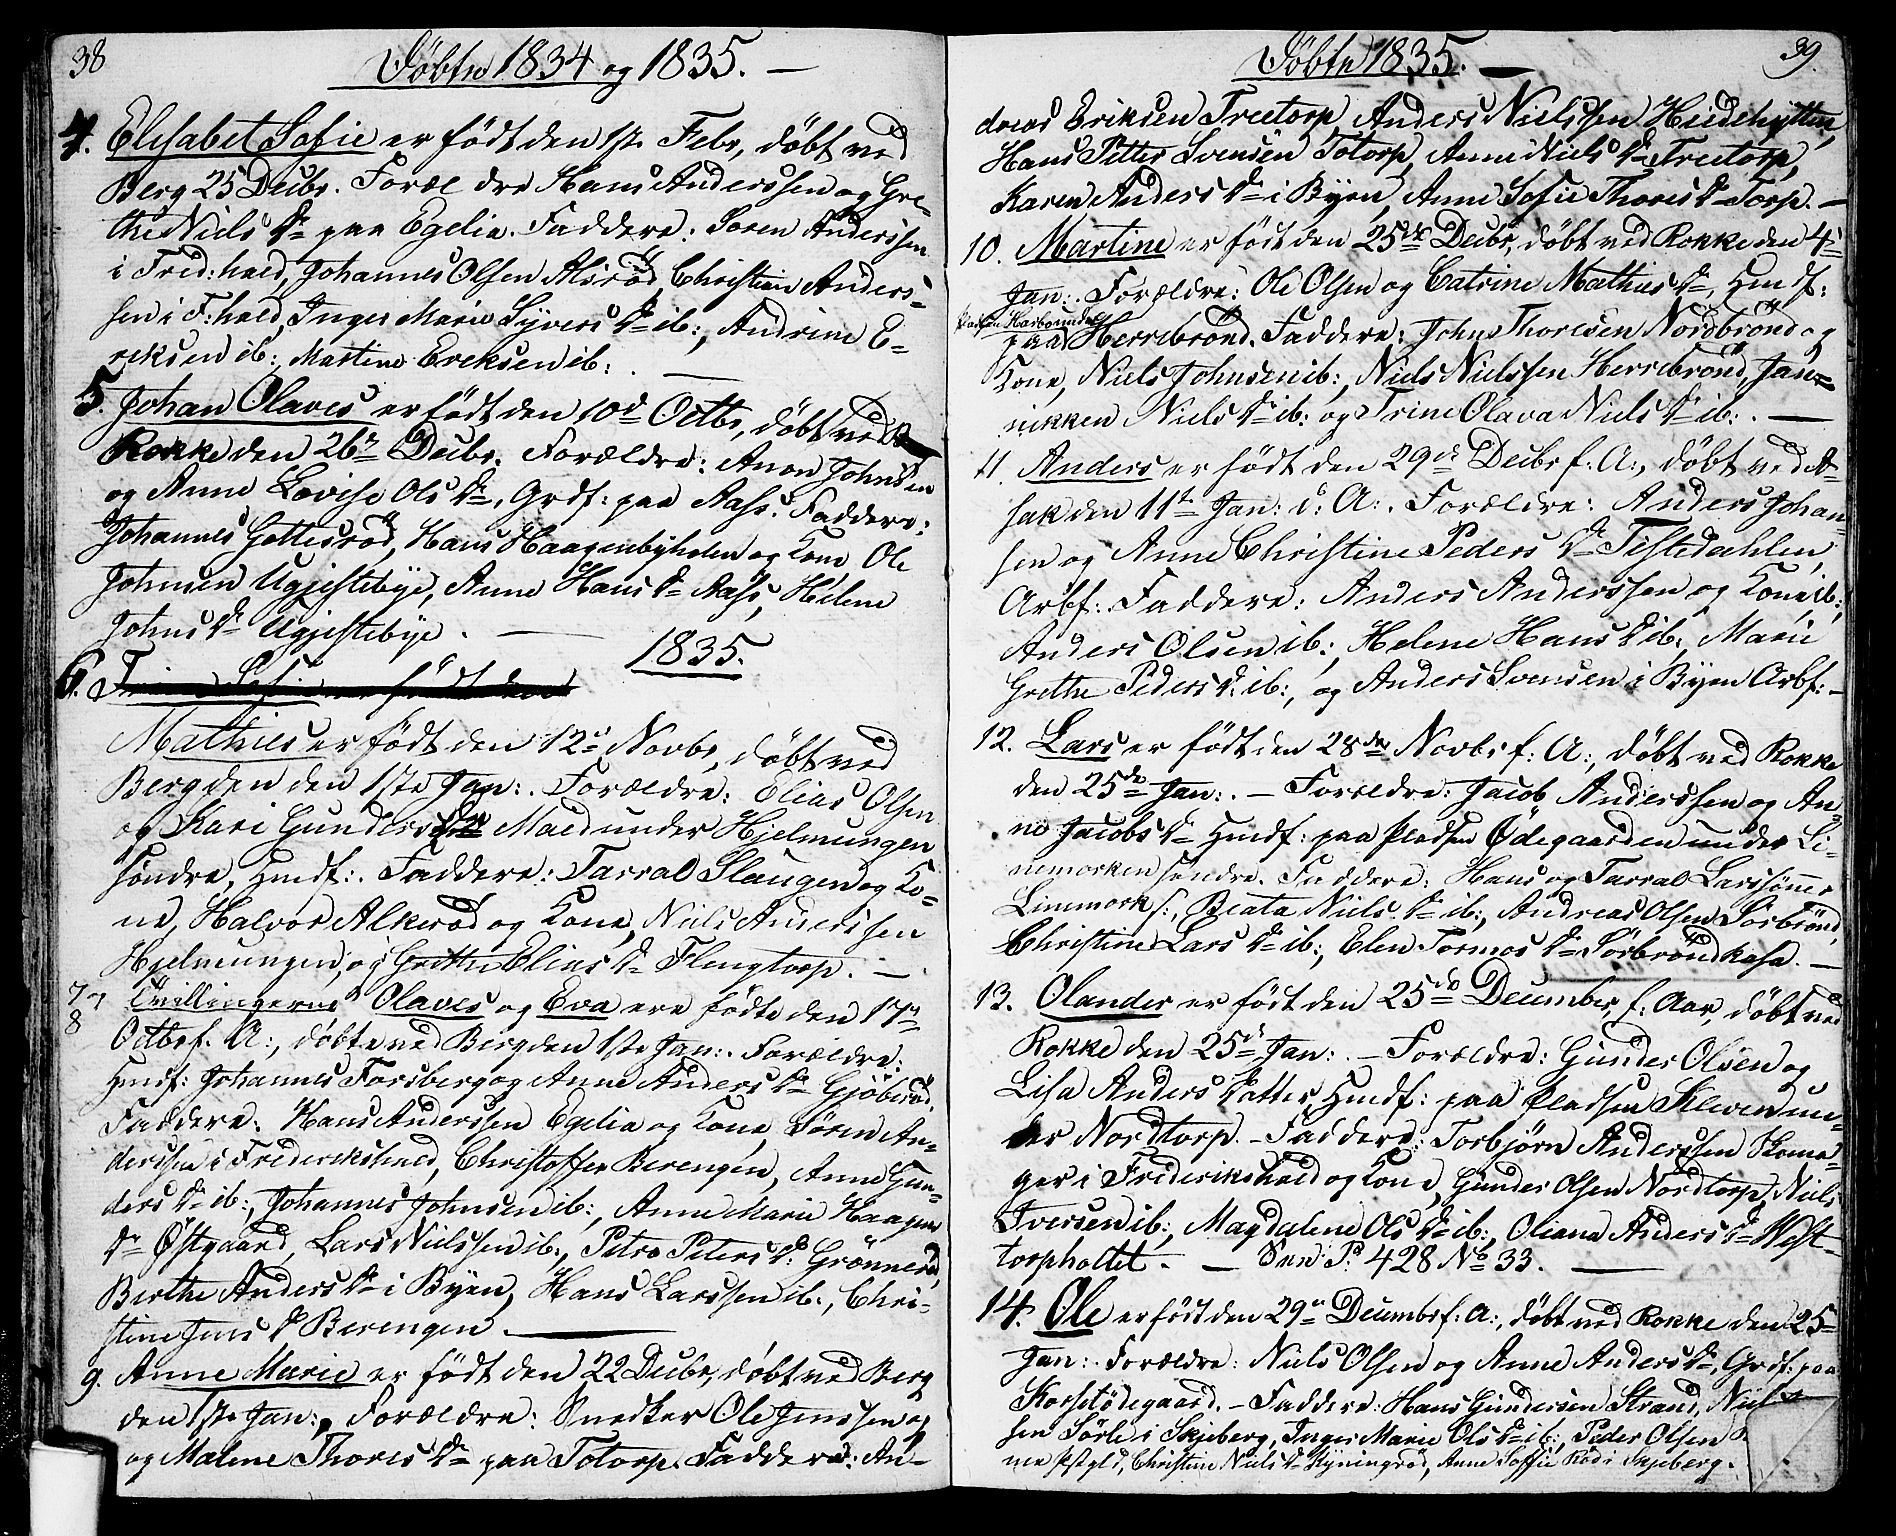 38
Döbte 1834 og 1835. —
4. Elisabet Sofie er födt den 1ste Febr, döbt ved
Berg 25 Decbr. Foræl dre Hans Anderssen og Gre-
the Niels D. paa Egelia. Faddere: Soren Anderssen
i Fred:hald, Johannes Olsen Alsröd, Christian Anders-
sen i F:hald, Inger Marie Syvers D. ib:, Andrine E-
riksen ib:, Martine Ericksen ib:. —
5. Johan Olaves er födt den 10d Octbr, döbt ved
Rokke den 26 Decbr. Forældre: Anon Johnsen
og Anne Lovise Ols D., Grdf: paa Aass. Faddere:
Johannes Gottersröd, Hans Haagenbyholen og Kone Ole
Johnsen Ugjestebye, Anne Hans D. Aass, Helene
Johns D. Ugjestebye. —
1835.
6. Trine Sofie er födt den
Mathies er födt den 12 Novbr, döbt ved
Berg den den 1ste Jan:. Forældre: Elias Olsen
og Kari Gunders D. Maed under Hjelmungen
söndre, Hmdf:. Faddere: Tarral Slaugen og Ko-
ne, Halvor Alkeröd og Kone, Niels Anderssen
Hjelmungen, og Grethe Elias D. Flengtorp. —
7 8 Tvillingerne Olaves og Eva ere födte den 17
Octbr f. A:, döbte ved Berg den 1ste Jan:. Forældre:
Hmdf: Johannes Forsberg og Anne Anders D. Gjöberöd.
Faddere: Hans Anderssen Egelia og Kone, Sören An-
derssen i Frederikshald, Christoffer Berengen, Anne Gun-
ders D. ib:, Johannes Johnsen ib:, Anne Marie Haagens
D. Östgaard, Lars Nielssen ib:, Petra Peters D: Grönneröd,
Berthe Anders D. i Byen, Hans Larssen ib:, Chri-
stine Jens D. Berengen. —
9. Anne Marie er födt den 22 Decbr, döbt ved Berg
den 1ste Jan:, Forældre: Snedker Ole Jenssen og
og Malene Thores D. paa Totorp. Faddere: An-
39.
Döbte 1835. —
dreas Eriksen Treetorp, Anders Nielssen Heidehytten,
Hans Petter Svensen Totorp, Anne Niels D. Treetorp,
Karen Anders D. i Byen, Anne Sofie Thores D. Torp. —
10. Martine er födt den 25de Decbr, döbt ved Rokke den 4
Jan:. Forældre: Ole Olsen og Catrine Mathias D., Hmdf:
paa Herrebrönd. Faddere: John Thoresen Nordbrönd og
Kone, Niels Johnsen ib:, Niels Nielssen Herrebrönd, Jan-
nikken Niels D. ib: og Trine Olava Niels D. ib:. —
11. Anders er födt den 29de Decbr f: A:, döbt ved A-
sak den 11te Jan: d: A:. Forældre: Anders Johan-
sen og Anne Christine Peders D. Tistedahlen,
Arbf:. Faddere: Anders Anderssen og Kone ib:,
Anders Olsen ib:, Helene Hans D. ib:, Marie
Grethe Peders D: ib:, og Anders Svensen i Byen Arbf: —
12. Lars er födt den 28de Novbr f: A:, döbt ved Rokke
den 25de Jan:. — Forældre: Jacob Anderssen og An-
ne Jacobs D. Hmdf: paa Pladsen Ödegaarden under Li-
nemorken söndre. Faddere: Hans og Tarral Larssönner
Linemork s:, Beata Niels D. ib:, Andreas Olsen Sörbrönd,
Christine Lars D. ib:, Elen Tormos D. Sörbröndkasa. —
13. Olander er födt den 25de December f: Aar, döbt ved
Rokke den 25 Jan:. — Forældre: Gunder Olsen og
Lisa Anders Datter Hmdf: paa Pladsen Kleven un-
der Nordtorp. — Faddere: Torbjörn Anderssen Skoma-
ger i Frideriksald og Kone, Gunder Olsen Nordtorp, Niels
Iversen ib:, Magdalene Ols D. ib:, Oliana Anders D. West-
torpholtet. — See P. 428 No 33. —
14. Ole er födt den 29 Decembr f: A:, döbt ved Rokke den 25
Jan:. Forældre: Niels Olsen og Anne Anders D., Grdf: paa
Korsetödegaard. — Faddere: Hans Gundersen Strand, Niels
sen Sörle i Skjeberg, Inger Marie Ols D. ib:, Peder Olsen
Christine Niels D. Kyningröd, Anne Sofie Röd i Skjeberg.